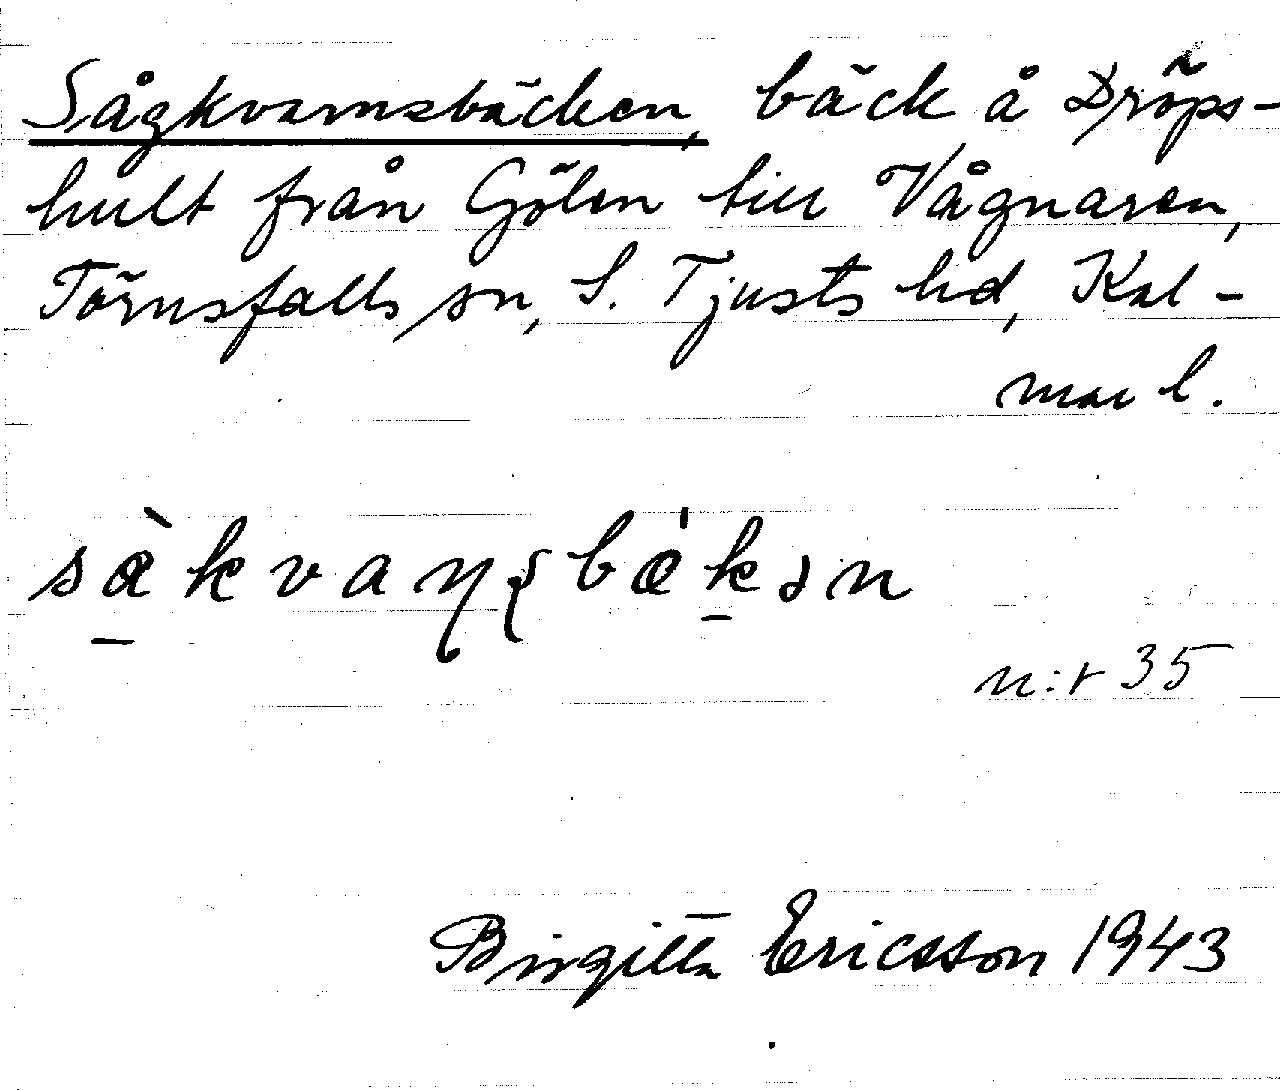 Sågkvarnsbäcken, bäck å Dröps-
hult från Gölen till Vågnaren,
Törnsfalls sn, S. Tjusts hd, Kal-
mar l.
n:r 35
Birgitta Ericsson 1943